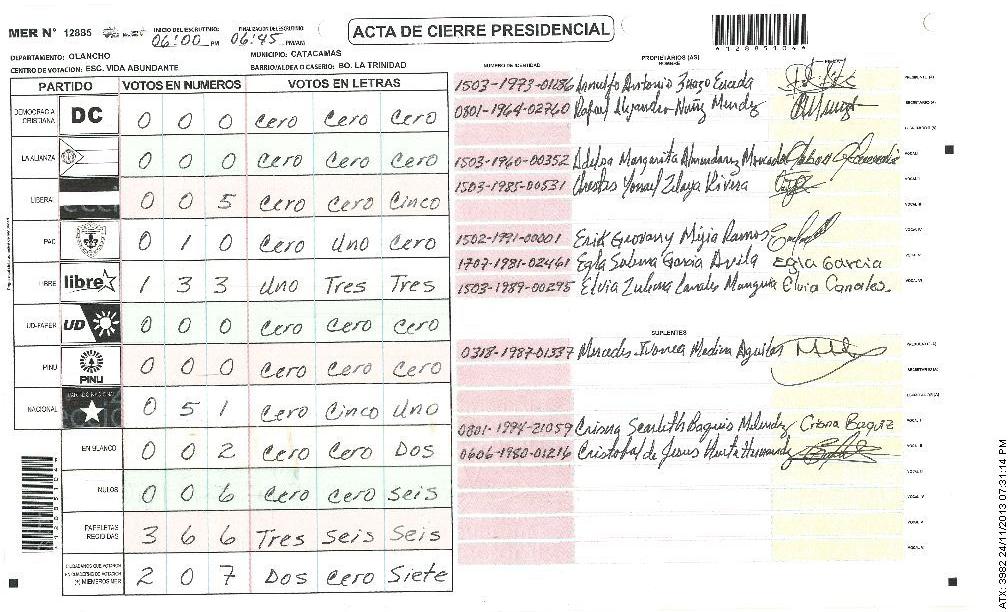 MER N° 12885 INICIO DEL ESCRUTINIO: 06:00 PM FINALIZACION DEL ESCRUTINIO: 06:45 PM/AM
ACTA DE CIERRE PRESIDENCIAL
DEPARTAMENTO: OLANCHO MUNICIPIO: CATACAMAS
CENTRO DE VOTACION: ESC. VIDA ABUNDANTE BARRIO/ALDEA O CASERIO: BO. LA TRINIDAD
PARTIDO VOTOS EN NUMEROS VOTOS EN LETRAS
DEMOCRACIA CRISTIANA DC 0 0 0 Cero Cero Cero
LA ALIANZA 0 0 0 Cero Cero Cero
LIBERAL 0 0 5 Cero Cero Cinco
PAC 0 1 0 Cero Uno Cero
LIBRE libre 1 3 3 Uno Tres Tres
UD-FAPER UD 0 0 0 Cero Cero Cero
PINU PINU 0 0 0 Cero Cero Cero
NACIONAL 0 5 1 Cero Cinco Uno
EN BLANCO 0 0 2 Cero Cero Dos
NULOS 0 0 6 Cero Cero Seis
PAPELETAS RECIBIDAS 3 6 6 Tres Seis Seis
CIUDADANOS QUE VOTARON EN CUADERNO DE VOTACION (+) MIEMBROS MER 2 0 7 Dos Cero Siete
NUMERO DE IDENTIDAD PROPIETARIOS (AS) NOMBRE
1503-1973-01286 Arnulfo Antonio
0801-1964-02760 Rafael Alejandro Nuñez Mendez
1503-1960-00352 Adelsa Margarita
1503-1985-00531 Zelaya Rivera
1502-1991-00001 Erik Geovany Mejia Ramos
1707-1981-02461 Egla Sabina Garcia Avila Egla Garcia
1503-1989-00295 Elvia Zulema Canales Elvia Canales
SUPLENTES
0318-1987-01337 Mercedes Ivonea Medina Aguilar
0801-1994-21059 Crisna Scarleth Baquis Melendez
0606-1980-01216 Cristobal de Jesus
ATX: 3982 24/11/2013 07:31:14 PM